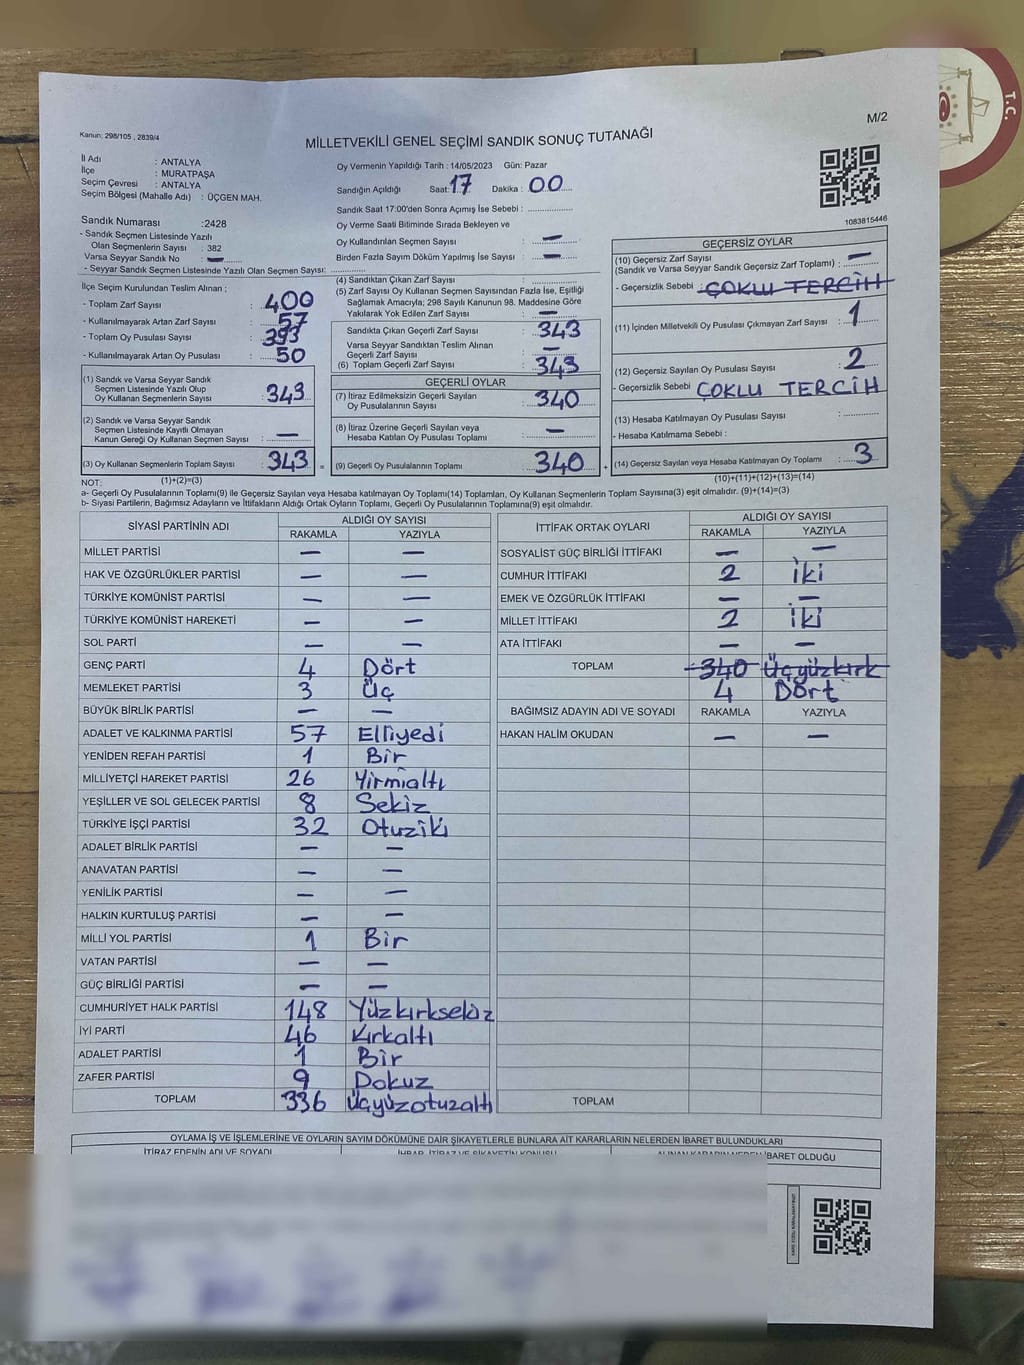 T.C.
M/2
Kanun: 298/105 , 2839/4
MİLLETVEKİLİ GENEL SEÇİMİ SANDIK SONUÇ TUTANAĞI
İl Adı : ANTALYA
İlçe : MURATPAŞA
Seçim Çevresi : ANTALYA
Seçim Bölgesi (Mahalle Adı) : ÜÇGEN MAH.
Oy Vermenin Yapıldığı Tarih : 14/05/2023 Gün: Pazar
Sandığın Açıldığı Saat: 17 Dakika : 00
Sandık Saat 17:00'den Sonra Açımış İse Sebebi :
Oy Verme Saati Bitiminde Sırada Bekleyen ve
Oy Kullandırılan Seçmen Sayısı : —
Birden Fazla Sayım Döküm Yapılmış İse Sayısı : —
1083815446
Sandık Numarası :2428
- Sandık Seçmen Listesinde Yazılı
Olan Seçmenlerin Sayısı : 382
Varsa Seyyar Sandık No : —
- Seyyar Sandık Seçmen Listesinde Yazılı Olan Seçmen Sayısı:
İlçe Seçim Kurulundan Teslim Alınan ;
- Toplam Zarf Sayısı : 400
- Kullanılmayarak Artan Zarf Sayısı : 57
- Toplam Oy Pusulası Sayısı : 393
- Kullanılmayarak Artan Oy Pusulası : 50
(1) Sandık ve Varsa Seyyar Sandık
Seçmen Listesinde Yazılı Olup
Oy Kullanan Seçmenlerin Sayısı : 343
(2) Sandık ve Varsa Seyyar Sandık
Seçmen Listesinde Kayıtlı Olmayan
Kanun Gereği Oy Kullanan Seçmen Sayısı : —
(3) Oy Kullanan Seçmenlerin Toplam Sayısı : 343 =
(4) Sandıktan Çıkan Zarf Sayısı :
(5) Zarf Sayısı Oy Kullanan Seçmen Sayısından Fazla İse, Eşitliği
Sağlamak Amacıyla; 298 Sayılı Kanunun 98. Maddesine Göre
Yakılarak Yok Edilen Zarf Sayısı : —
Sandıkta Çıkan Geçerli Zarf Sayısı : 343
Varsa Seyyar Sandıktan Teslim Alınan
Geçerli Zarf Sayısı : —
(6) Toplam Geçerli Zarf Sayısı : 343
GEÇERLİ OYLAR
(7) İtiraz Edilmeksizin Geçerli Sayılan
Oy Pusulalarının Sayısı : 340
(8) İtiraz Üzerine Geçerli Sayılan veya
Hesaba Katılan Oy Pusulası Toplamı : —
(9) Geçerli Oy Pusulalarının Toplamı : 340 +
GEÇERSİZ OYLAR
(10) Geçersiz Zarf Sayısı
(Sandık ve Varsa Seyyar Sandık Geçersiz Zarf Toplamı) : —
- Geçersizlik Sebebi : ÇOKLU TERCİH
(11) İçinden Milletvekili Oy Pusulası Çıkmayan Zarf Sayısı : 1
(12) Geçersiz Sayılan Oy Pusulası Sayısı : 2
- Geçersizlik Sebebi ÇOKLU TERCİH
(13) Hesaba Katılmayan Oy Pusulası Sayısı :
- Hesaba Katılmama Sebebi :
(14) Geçersiz Sayılan veya Hesaba Katılmayan Oy Toplamı : 3
NOT: (1)+(2)=(3) (10)+(11)+(12)+(13)=(14)
a- Geçerli Oy Pusulalarının Toplamı(9) ile Geçersiz Sayılan veya Hesaba katılmayan Oy Toplamı(14) Toplamları, Oy Kullanan Seçmenlerin Toplam Sayısına(3) eşit olmalıdır. (9)+(14)=(3)
b- Siyasi Partilerin, Bağımsız Adayların ve İttifakların Aldığı Ortak Oyların Toplamı, Geçerli Oy Pusulalarının Toplamına(9) eşit olmalıdır.
SİYASİ PARTİNİN ADI ALDIĞI OY SAYISI
RAKAMLA YAZIYLA
MİLLET PARTİSİ — —
HAK VE ÖZGÜRLÜKLER PARTİSİ — —
TÜRKİYE KOMÜNİST PARTİSİ — —
TÜRKİYE KOMÜNİST HAREKETİ — —
SOL PARTİ — —
GENÇ PARTİ 4 Dört
MEMLEKET PARTİSİ 3 Üç
BÜYÜK BİRLİK PARTİSİ — —
ADALET VE KALKINMA PARTİSİ 57 Elliyedi
YENİDEN REFAH PARTİSİ 1 Bir
MİLLİYETÇİ HAREKET PARTİSİ 26 Yirmialtı
YEŞİLLER VE SOL GELECEK PARTİSİ 8 Sekiz
TÜRKİYE İŞÇİ PARTİSİ 32 Otuziki
ADALET BİRLİK PARTİSİ — —
ANAVATAN PARTİSİ — —
YENİLİK PARTİSİ — —
HALKIN KURTULUŞ PARTİSİ — —
MİLLİ YOL PARTİSİ 1 Bir
VATAN PARTİSİ — —
GÜÇ BİRLİĞİ PARTİSİ — —
CUMHURİYET HALK PARTİSİ 148 Yüzkırksekiz
İYİ PARTİ 46 Kırkaltı
ADALET PARTİSİ 1 Bir
ZAFER PARTİSİ 9 Dokuz
TOPLAM 336 Üçyüzotuzaltı
İTTİFAK ORTAK OYLARI ALDIĞI OY SAYISI
RAKAMLA YAZIYLA
SOSYALİST GÜÇ BİRLİĞİ İTTİFAKI — —
CUMHUR İTTİFAKI 2 İki
EMEK VE ÖZGÜRLÜK İTTİFAKI — —
MİLLET İTTİFAKI 2 İki
ATA İTTİFAKI — —
TOPLAM 340 Üçyüzkırk
4 Dört
BAĞIMSIZ ADAYIN ADI VE SOYADI RAKAMLA YAZIYLA
HAKAN HALİM OKUDAN — —
TOPLAM
OYLAMA İŞ VE İŞLEMLERİNE VE OYLARIN SAYIM DÖKÜMÜNE DAİR ŞİKAYETLERLE BUNLARA AİT KARARLARIN NELERDEN İBARET BULUNDUKLARI
İTİRAZ EDENİN ADI VE SOYADI İHBAR, İTİRAZ VE ŞİKAYETİN KONUSU ALINAN KARARIN NEDEN İBARET OLDUĞU